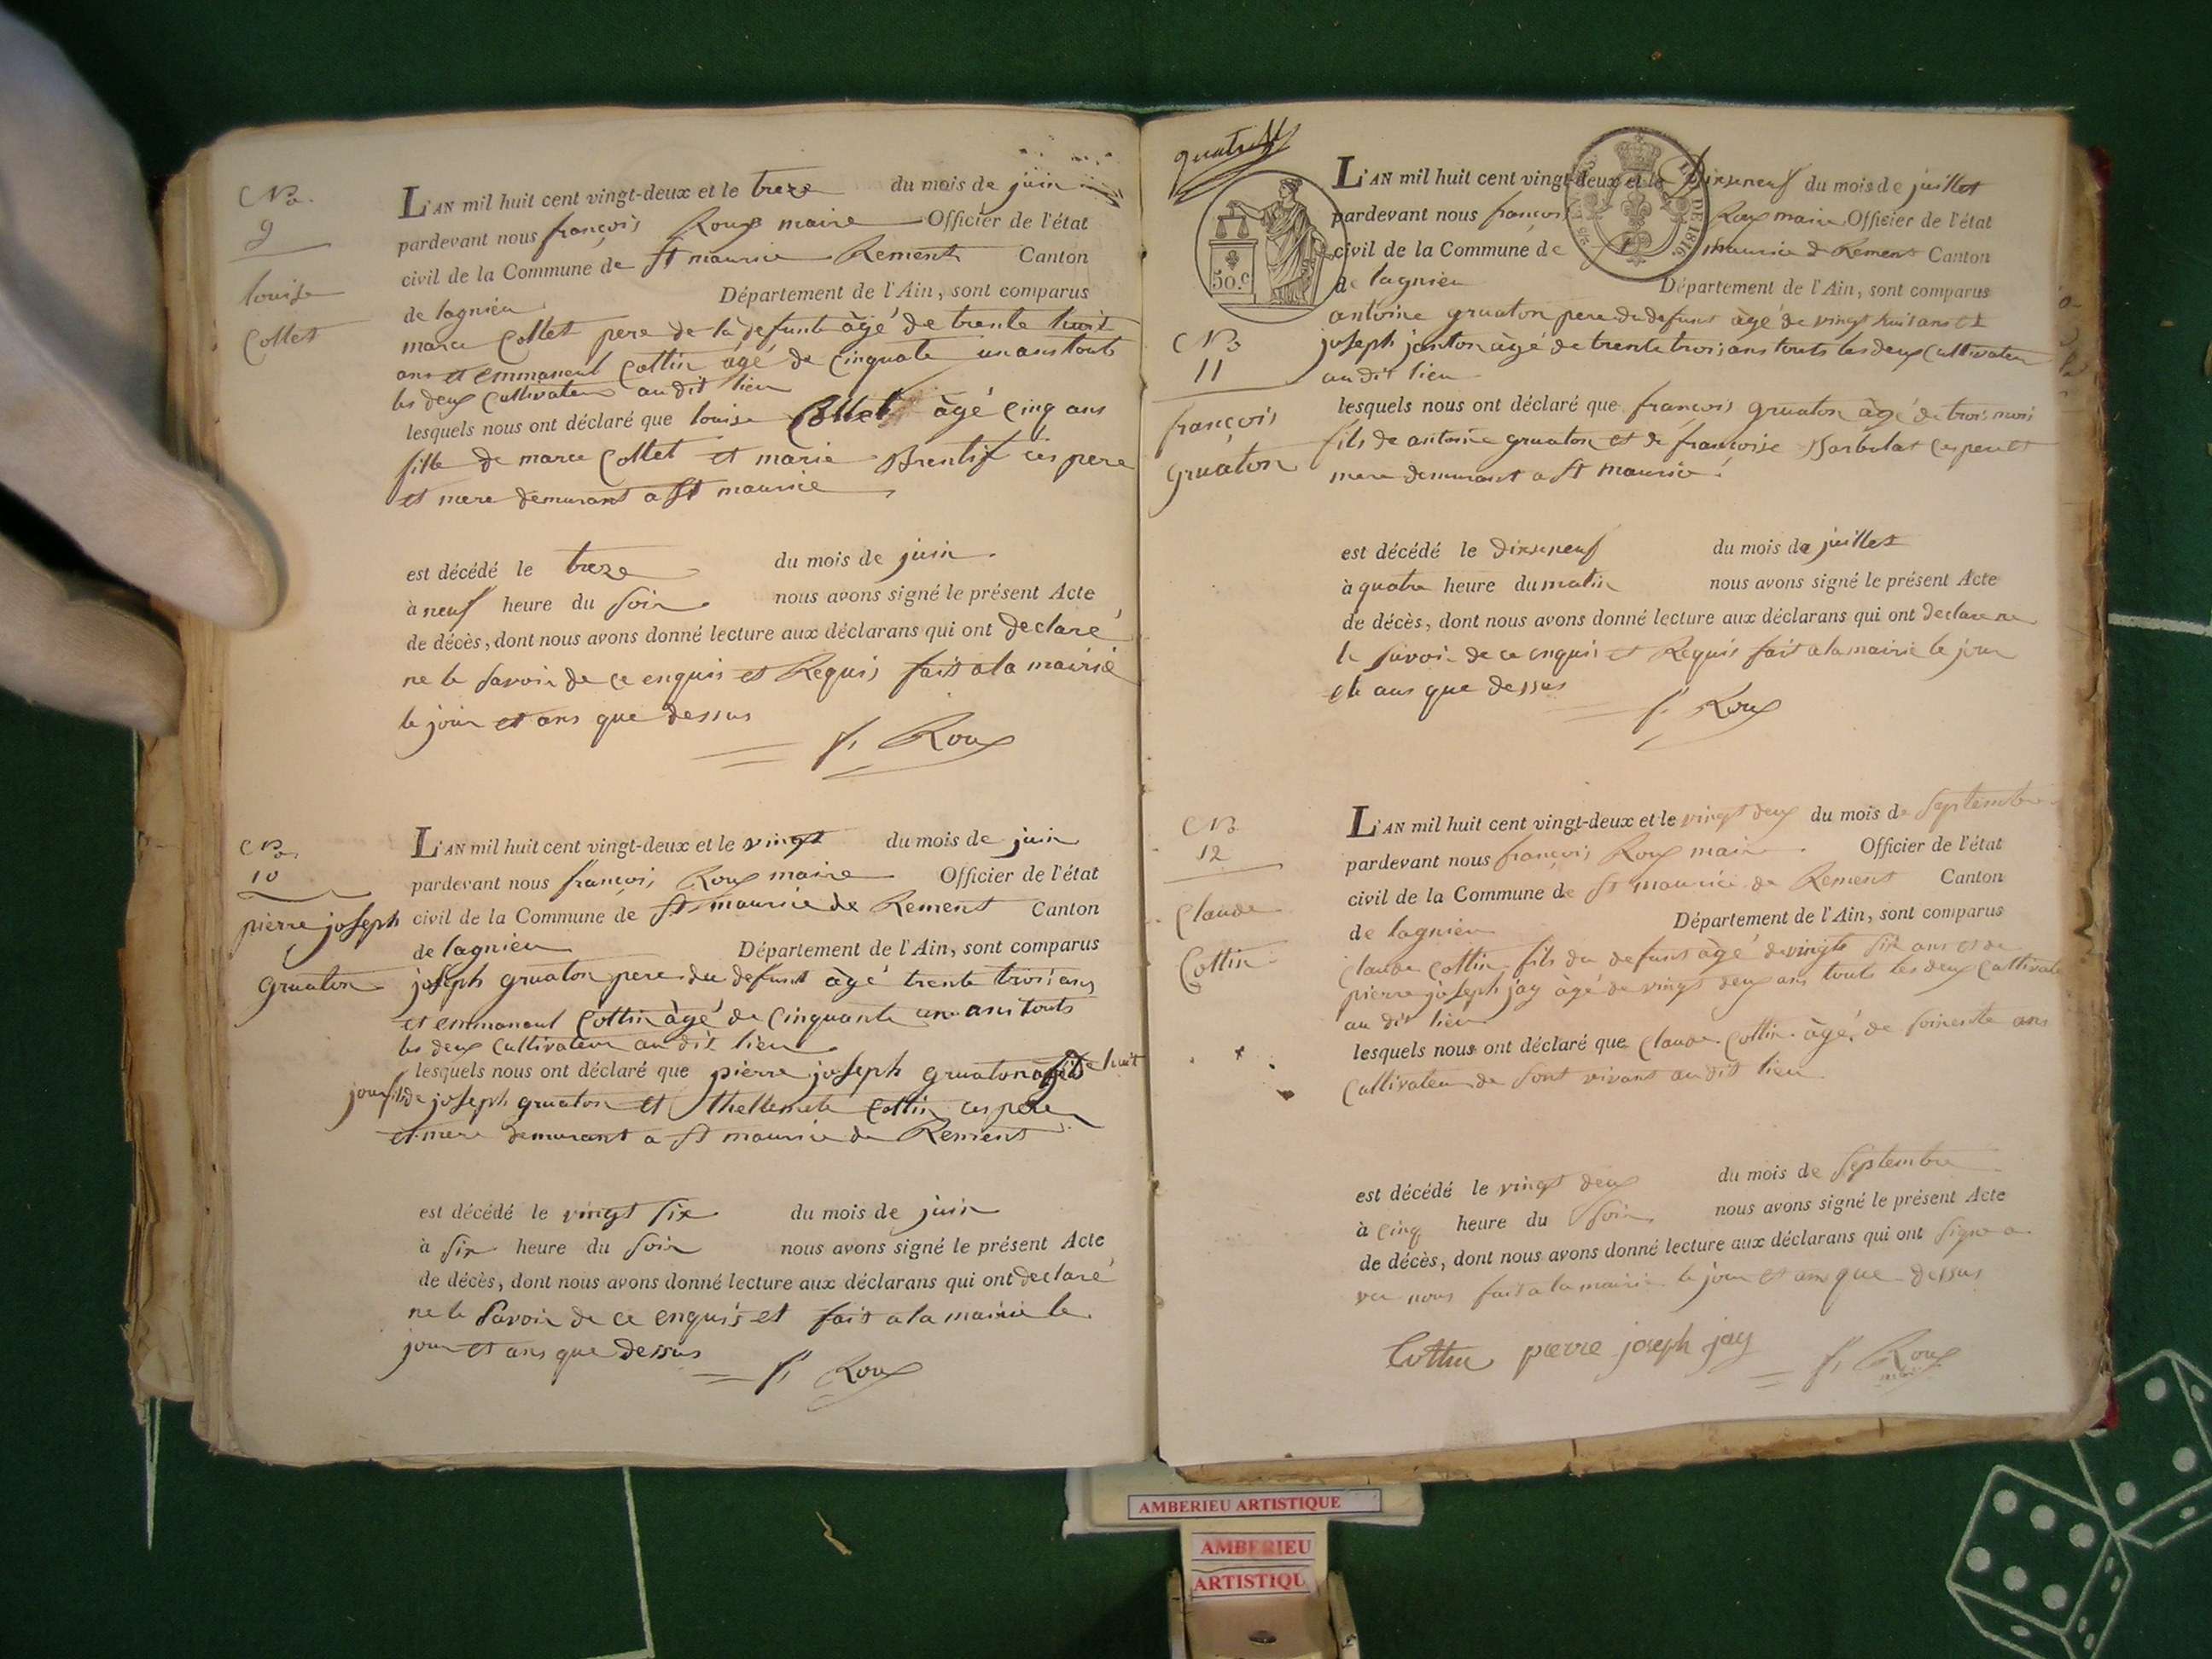 No.
9
louise
Collet
L'AN mil huit cent vingt-deux et le treze du mois de juin
pardevant nous françois Roux maire Officier de l'état
civil de la Commune de St maurice Rement Canton
de lagnieu Département de l'Ain, sont comparus
marce Collet pere de la defunte àgé de trente huit
ans et emmanuel Cottin àgé de Cinquate un ans touts
les deux Cultivateur au dit lieu
lesquels nous ont déclaré que louise Collet àgé Cinq ans
fille de marce Collet et marie Brentif ces pere
et mere demurant a St maurice
est décédé le treze du mois de juin
à neuf heure du Soir nous avons signé le présent Acte
de décès, dont nous avons donné lecture aux déclarans qui ont declaré
ne le Savoir de ce enquis et Requis fait a la mairie
le jour et ans que dessus
f. Roux
No.
10
pierre joseph
gruaton
L'AN mil huit cent vingt-deux et le vingt du mois de juin
pardevant nous françois Roux maire Officier de l'état
civil de la Commune de St maurice de Rement Canton
de lagnieu Département de l'Ain, sont comparus
joseph gruaton pere du defunt àgé trente trois ans
et emmanuel Cottin àgé de Cinquante un ans touts
les deux Cultivateur au dit lieu
lesquels nous ont déclaré que pierre joseph gruaton àgé de huit
jour fils de joseph gruaton et Cottin ces pere
et mere demurant a St maurice de Rement
est décédé le vingt Six du mois de juin
à Six heure du Soir nous avons signé le présent Acte
de décès, dont nous avons donné lecture aux déclarans qui ont declaré
ne le Savoir de ce enquis et fait a la mairie le
jour et ans que dessus
f. Roux
50.c
DE 1816
L'AN mil huit cent vingt-deux et le Dixeneuf du mois de juillet
pardevant nous françois Roux maire Officier de l'état
civil de la Commune de St maurice d Rement Canton
de lagnieu Département de l'Ain, sont comparus
antoine gruaton pere du defunt àgé de vingt huit ans et
joseph janton àgé de trente trois ans touts les deux Cultivateur
au dit lieu
No
11
françois
gruaton
lesquels nous ont déclaré que françois gruaton àgé de trois mois
fils de antoine gruaton et de françoise Barbolat ces pere et
mere demurant a St maurice
est décédé le dixeneuf du mois de juillet
à quatre heure du matin nous avons signé le présent Acte
de décès, dont nous avons donné lecture aux déclarans qui ont declare ne
le Savoir de ce enquis et Requis fait a la mairie le jour
et ans que dessus
f. Roux
No
12
Claude
Cottin
L'AN mil huit cent vingt-deux et le vingt deux du mois de Septembre
pardevant nous françois Roux maire Officier de l'état
civil de la Commune de St maurice de Rement Canton
de lagnieu Département de l'Ain, sont comparus
Claude Cottin fils du defunt àgé de vingts Six ans et de
pierre joseph jay àgé de vingt deux ans touts les deux Cultivate
au dit lieu
lesquels nous ont déclaré que Claude Cottin àgé de Soixente ans
Cultivateur de Sont vivant au dit lieu
est décédé le vingt deux du mois de Septembre
à Cinq heure du Soir nous avons signé le présent Acte
de décès, dont nous avons donné lecture aux déclarans qui ont Signe a
vec nous fait a la mairie le jour et ans que dessus
Cottin pierre joseph jay f. Roux
AMBERIEU ARTISTIQUE
AMBERIEU
ARTISTIQU